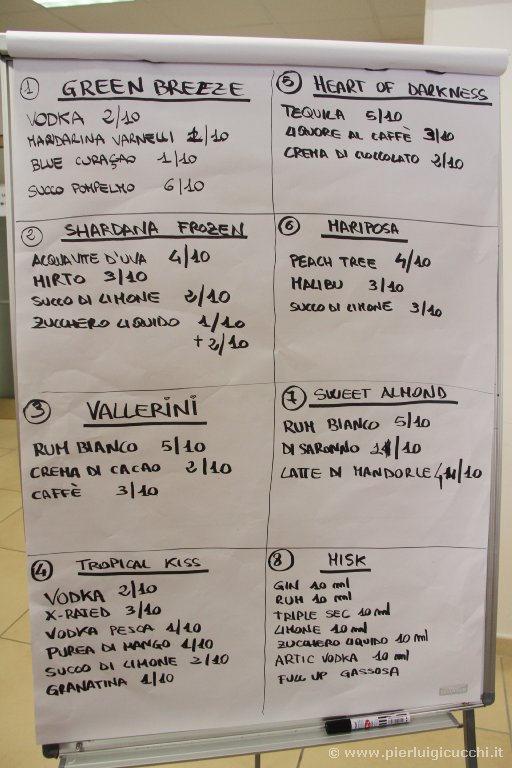 1 GREEN BREEZE
VODKA 2/10
MANDARINA VARNELLI 1/10
BLUE CURAÇAO 1/10
SUCCO POMPELMO 6/10
2 SHARDANA FROZEN
ACQUAVITE D'UVA 4/10
MIRTO 3/10
SUCCO DI LIMONE 2/10
ZUCCHERO LIQUIDO 1/10
+ 2/10
3 VALLERINI
RUM BIANCO 5/10
CREMA DI CACAO 2/10
CAFFÈ 3/10
4 TROPICAL KISS
VODKA 2/10
X-RATED 3/10
VODKA PESCA 1/10
PUREA DI MANGO 1/10
SUCCO DI LIMONE 2/10
GRANATINA 1/10
5 HEART OF DARKNESS
TEQUILA 5/10
LIQUORE AL CAFFÈ 3/10
CREMA DI CIOCCOLATO 2/10
6 MARIPOSA
PEACH TREE 4/10
MALIBU 3/10
SUCCO DI LIMONE 3/10
7 SWEET ALMOND
RUM BIANCO 5/10
DI SARONNO 1/10
LATTE DI MANDORLE 4/10
8 MISK
GIN 10 ml
RUM 10 ml
TRIPLE SEC 10 ml
LIMONE 10 ml
ZUCCHERO LIQUIDO 10 ml
ARTIC VODKA 10 ml
FULL UP GASSOSA
© www.pierluigicucchi.it